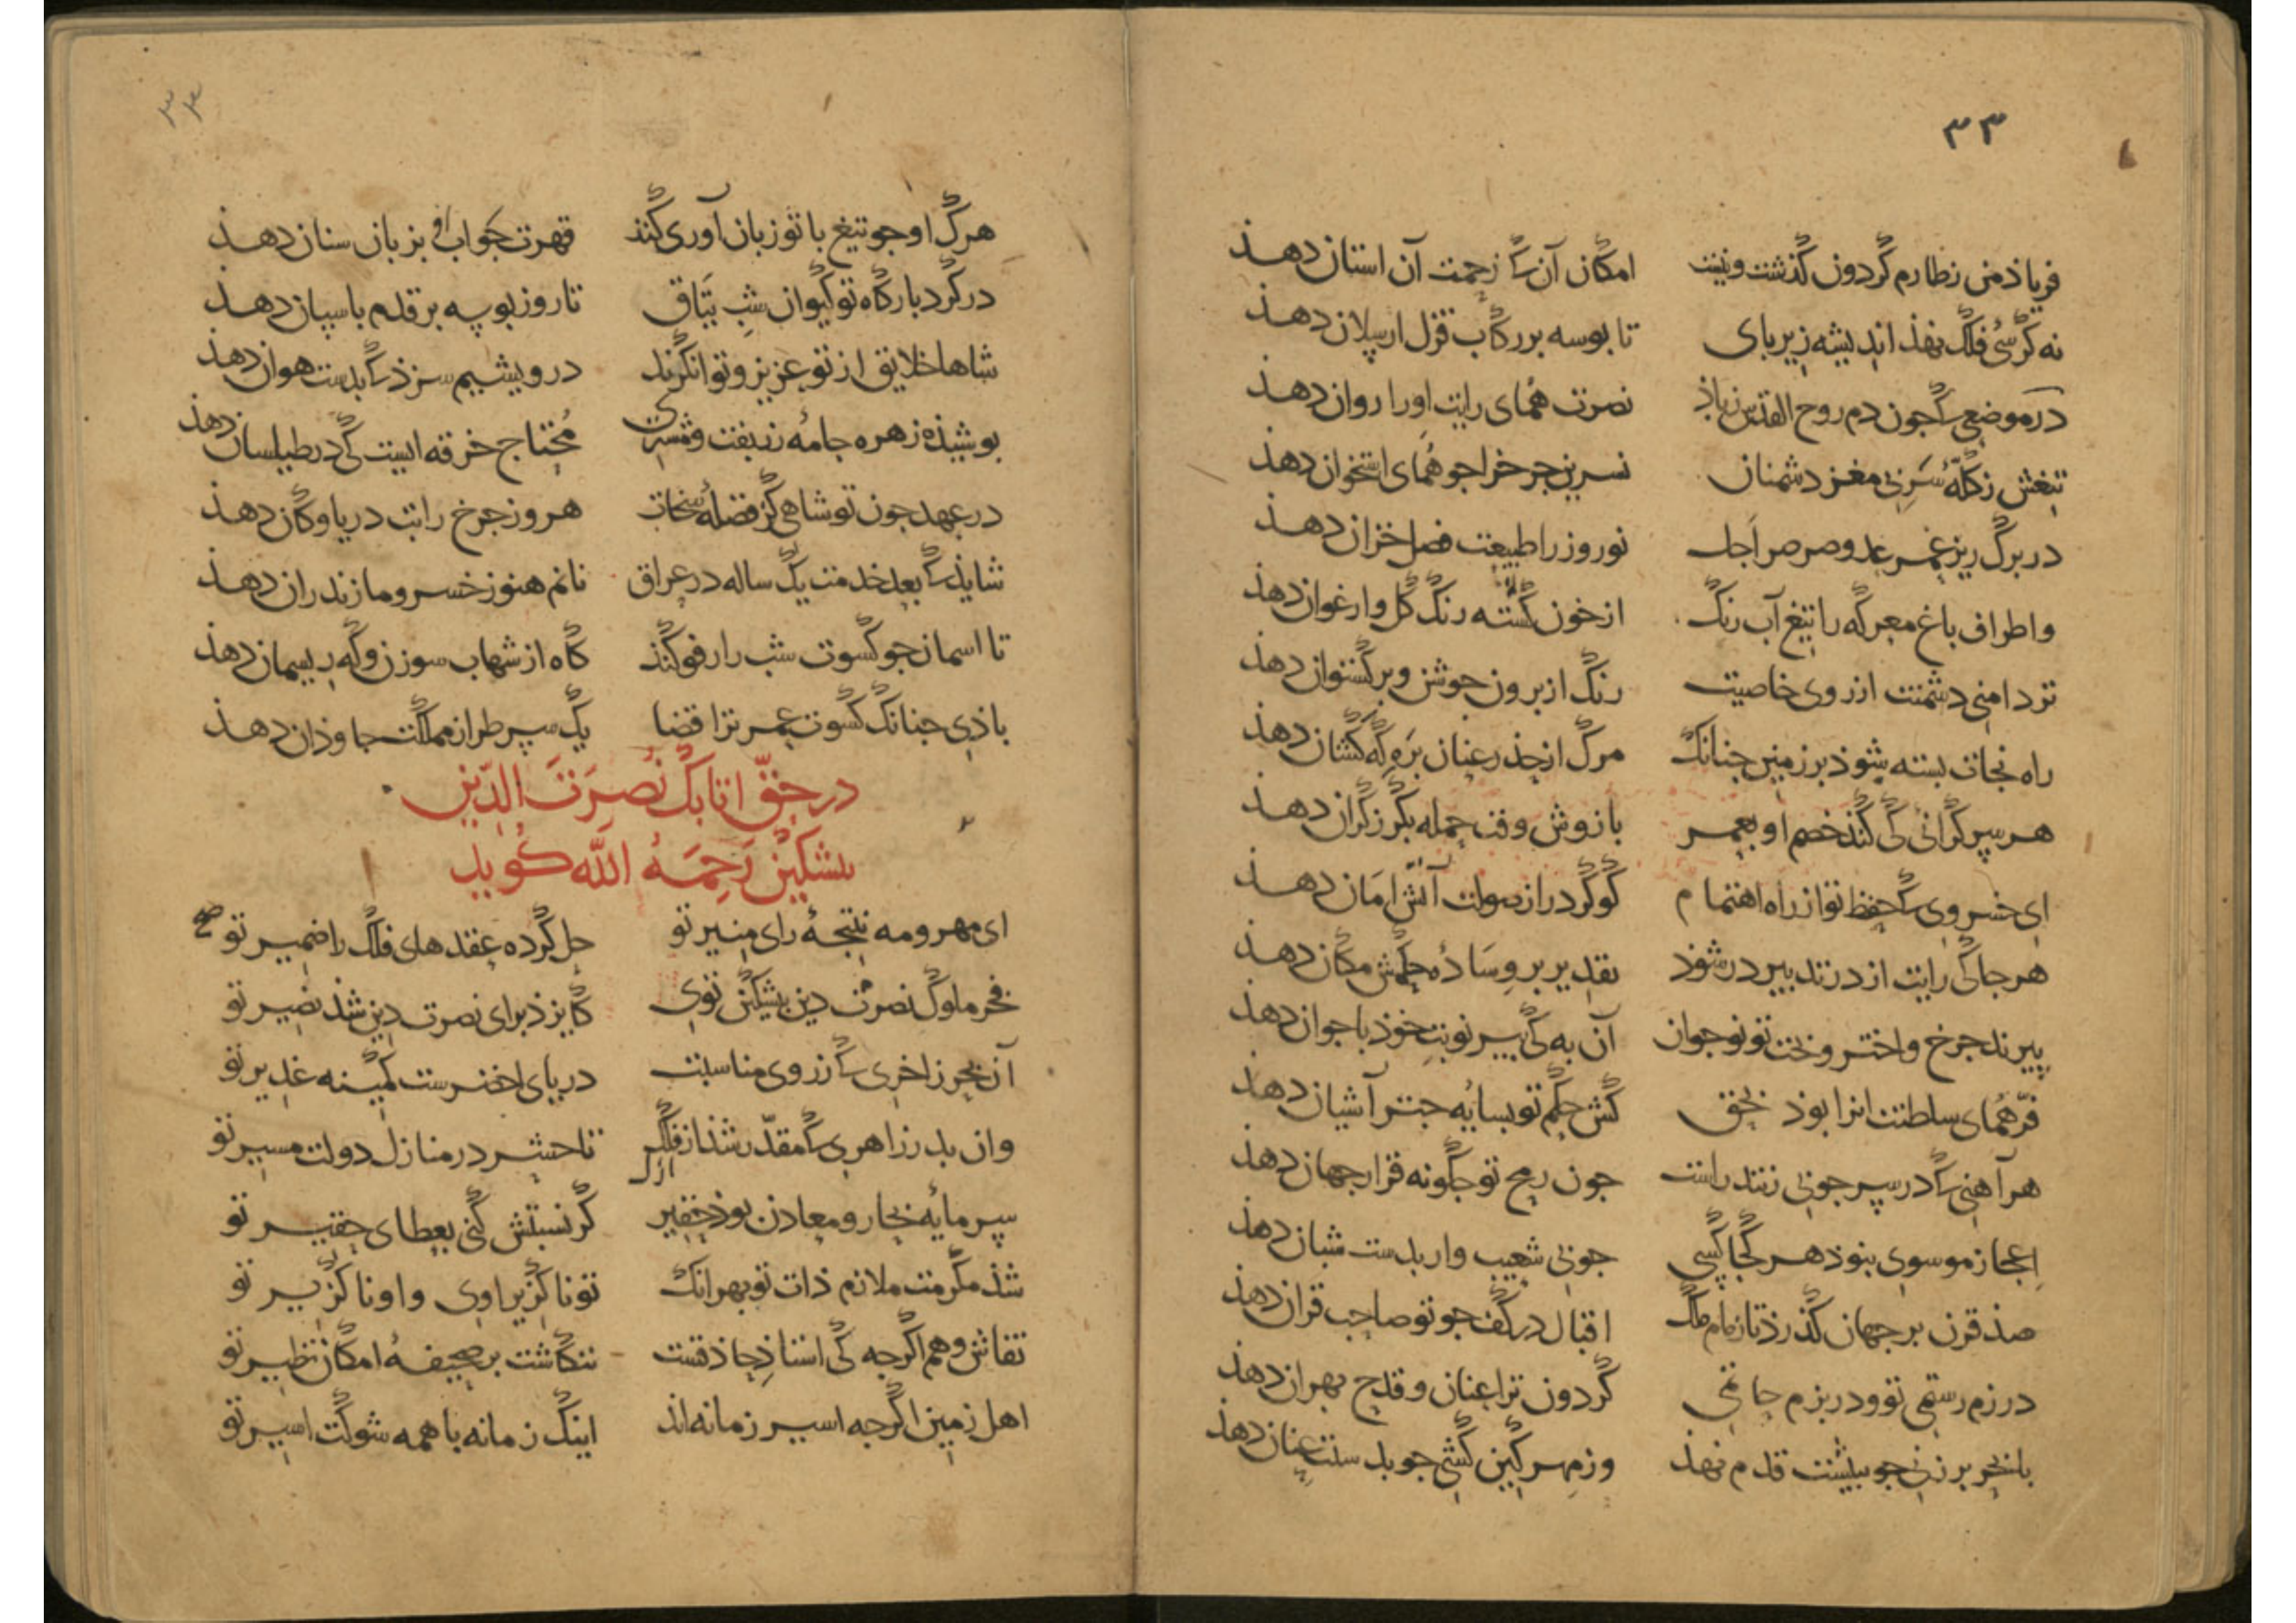 ۳۳
فریاذ من زطارم گردون گذشت و نیست امکان آن کی زحمت آن استان دهذ
نه کرسی فلک نهذ اندیشه زیر پای تا بوسه بر رکاب قزل ارسلان دهذ
در موضعی کی جون دم روح القدس زباذ نصرت همای رایت او را روان دهذ
تیغش زکلّه سر بی مغز دشمنان نسرین جرخ را جو همای استخوان دهذ
در برگ ریز عمر عدو صرصر اجل نوروز را طبیعت فصل خزان دهذ
و اطراف باغ معرکه را تیغ آب رنگ از خون کشته رنگ گل و ارغوان دهذ
تر دامنی دشمنت از روی خاصیت رنگ از برون جوشن و برگستوان دهذ
راه نجات بسته شوذ بر زمین جنانک مرگ از حذر عنان بره کهکشان دهذ
هر سر گرانئی کی کند خصم او بعمر بازوش وقت حمله بگرز گران دهذ
ای خسروی کی حفظ تو از راه اهتمام گوگرد را ز صولت آتش امان دهذ
هر جا کی رایت از در تدبیر در شوذ تقدیر بر وساده حکمش مکان دهذ
پیرند جرخ و اختر و بخت تو نوجوان آن به کی پیر نوبت خوذ با جوان دهذ
فرّ همای سلطنت انرا بوذ بحق کش حکم تو بسایه جتر آشیان دهذ
هر آهنی کی در سر جوبی زنند راست جون رمح تو جگونه قرار جهان دهذ
اعجاز موسوی نبوذ هر کجا کسی جوبی شعیب وار بدست شبان دهذ
صذ قرن بر جهان گذرذ تا زمام ملک اقبال در کف جو تو صاحب قران دهذ
در رزم رستمی تو و در بزم حاتمی گردون ترا عنان و قدح بهر ان دهذ
با بحر بر زنی جو ببیشت قدم نهذ وز مهر کین کشی جو بدستت عنان دهذ
۳۴
هرک او جو تیغ با تو زبان آوری کند قهرت جواب او بزبان سنان دهذ
در گرد بارگاه تو کیوان شب یتاق تا روز بوسه بر قدم باسبان دهذ
شاها خلایق از تو عزیز و توانگرند درویشیم سزذ کی بدست هوان دهذ
بوشیذه زهره جامه زربفت و مشتری محتاج خرقه ایست کی در طیلسان دهذ
در عهد جون تو شاهی کز فضله سخات هر روز جرخ راتب دریا و کان دهذ
شایذ کی بعد خدمت یک ساله در عراق نانم هنوز خسرو مازندران دهذ
تا اسمان جو کسوت شب را رفو کنذ گاه از شهاب سوزن و گه ریسمان دهذ
باذی جنانک کسوت عمر ترا قضا یک سر طراز مملکت جاوذان دهذ
در حقّ اتابک نصرت الدّین
بیشکین رحمه الله گوید
ای مهر و مه نتیجه رای منیر تو حل کرده عقدهای فلک را ضمیر تو
فخر ملوک نصرت دین بیشکین توی کایزذ برای نصرت دین شذ نصیر تو
آن بحر زاخری کی ز روی مناسبت دریای اخضرست کمینه غدیر تو
وان بدر زاهری کی مقدّر شذ از فلک تا حشر در منازل دولت مسیر تو
سرمایه بحار و معادن بوذ حقیر گر نسبتش کنی بعطای حقیر تو
شذ مکرمت ملازم ذات تو بهر انک تو ناگزیر اوی و او ناگزیر تو
نقاش وهم اگرجه کی استاذ حاذقست ننگاشت بر صحیفه امکان نظیر تو
اهل زمین اگرجه اسیر زمانه اند اینک زمانه با همه شوکت اسیر تو